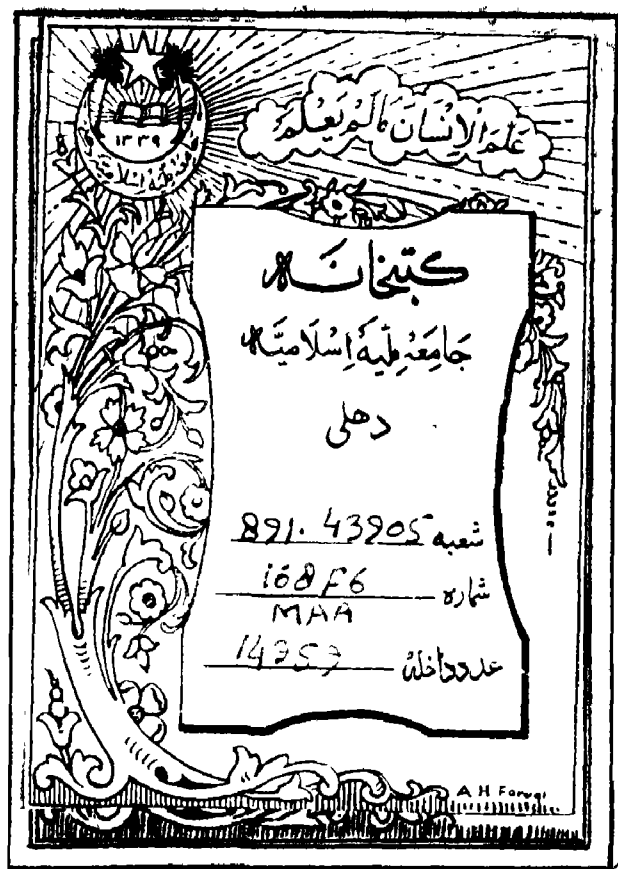 عَلَّمَ الْإِنْسَانَ مَا لَمْ يَعْلَمْ
١٣٣٩
جامعہ ملیہ اسلامیہ
کتبخانہ
جَامِعَہ مِلّیَہ اِسْلَامیَہ
دهلی
شعبہ 891.43905
شمارہ 168F6
MAA
عدد داخلہ 14259
A H Faruqi